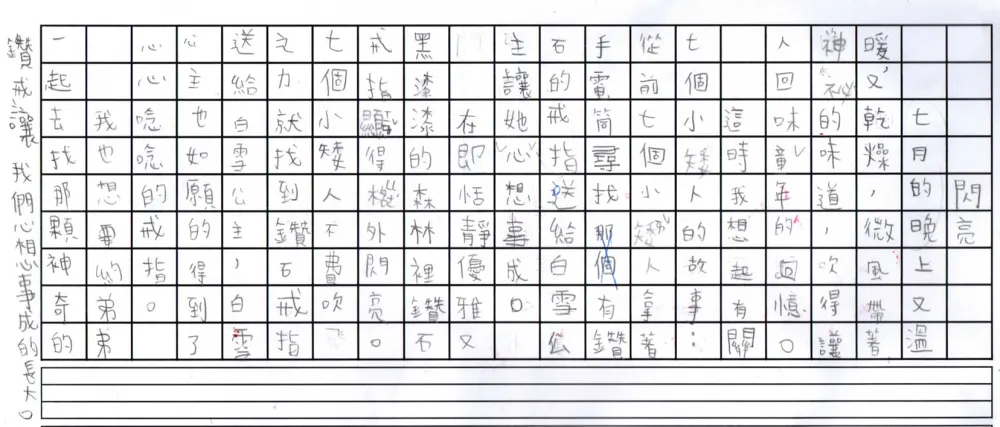 閃亮
七月的晚上又溫
暖又乾燥，微風帶著
神祕的味道，吹得讓
人回味童年的迴憶。
這時我想起有關
七個小矮人的故事：
從前七個小矮人拿著
手電筒尋找那個有鑽
石的戒指送給白雪公
主讓她心想事成。
在即恬靜優雅又
黑漆漆的森林裡鑽石
戒指顯得極外閃亮。
七個小矮人不費吹
之力就找到鑽石戒指
送給白雪公主，白雪
公主也如願的得到了
心心唸唸的戒指。
我也想要約弟弟
一起去找那顆神奇的
鑽戒讓我們心想事成的長大。